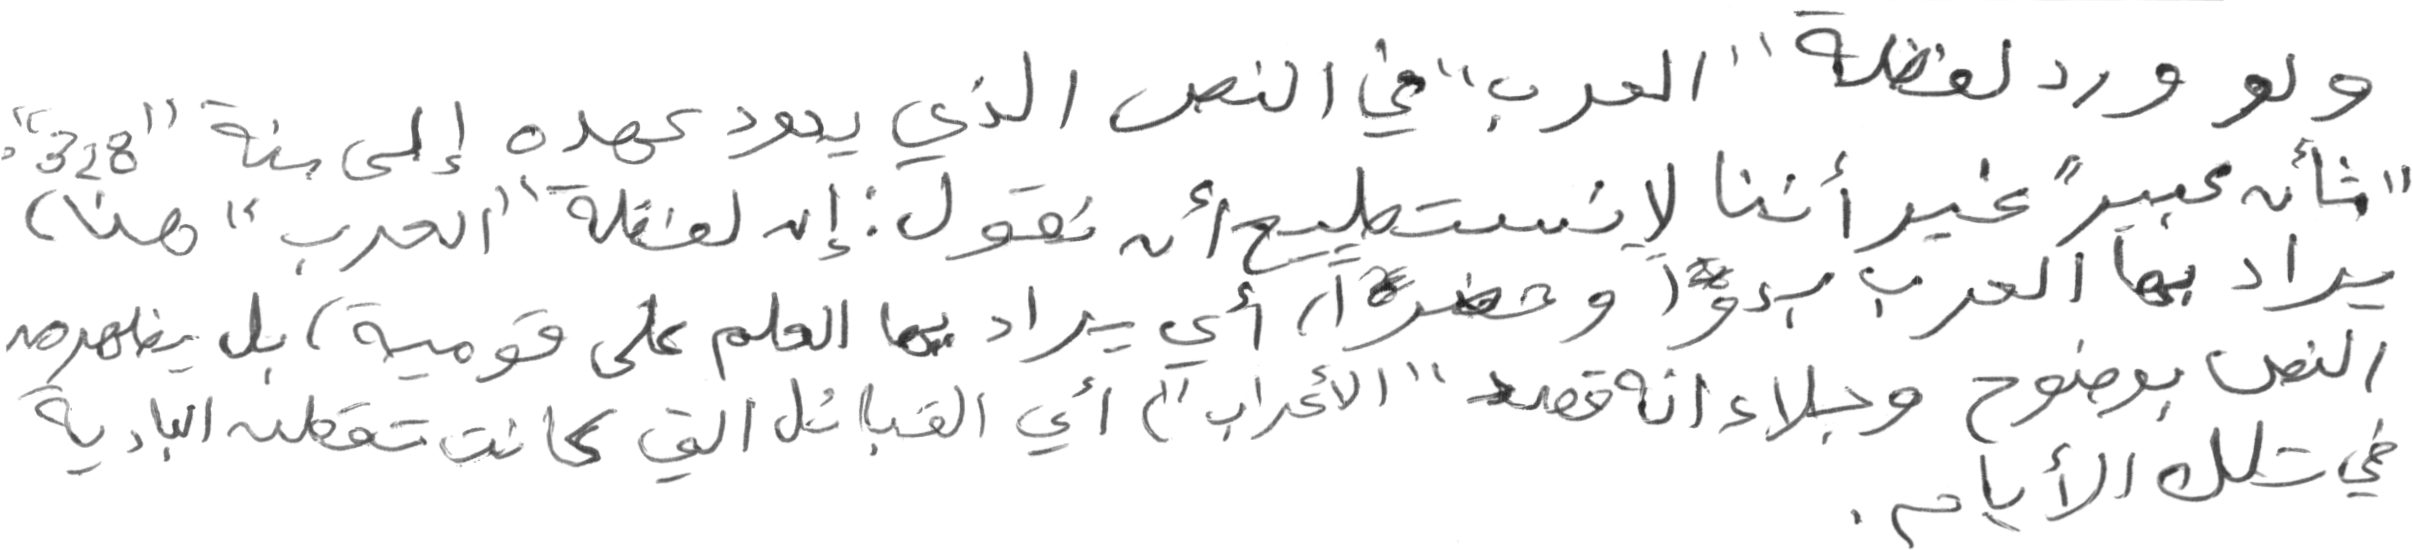 ولو ورد لفظة "العرب" في النص الذي يعود عهده إلى سنة "328"،
"شأن كبير" غير أننا لا نستطيع أن نقول: إن لفظة "العرب" هنا،
يراد بها العرب بدوًا وحضرًا، أي يراد بها العلم على قومية، بل يظهر من
النص بوضوح وجلاء انه قصد "الأعراب"، أي القبائل التي كانت تقطن البادية
في تلك الأيام.